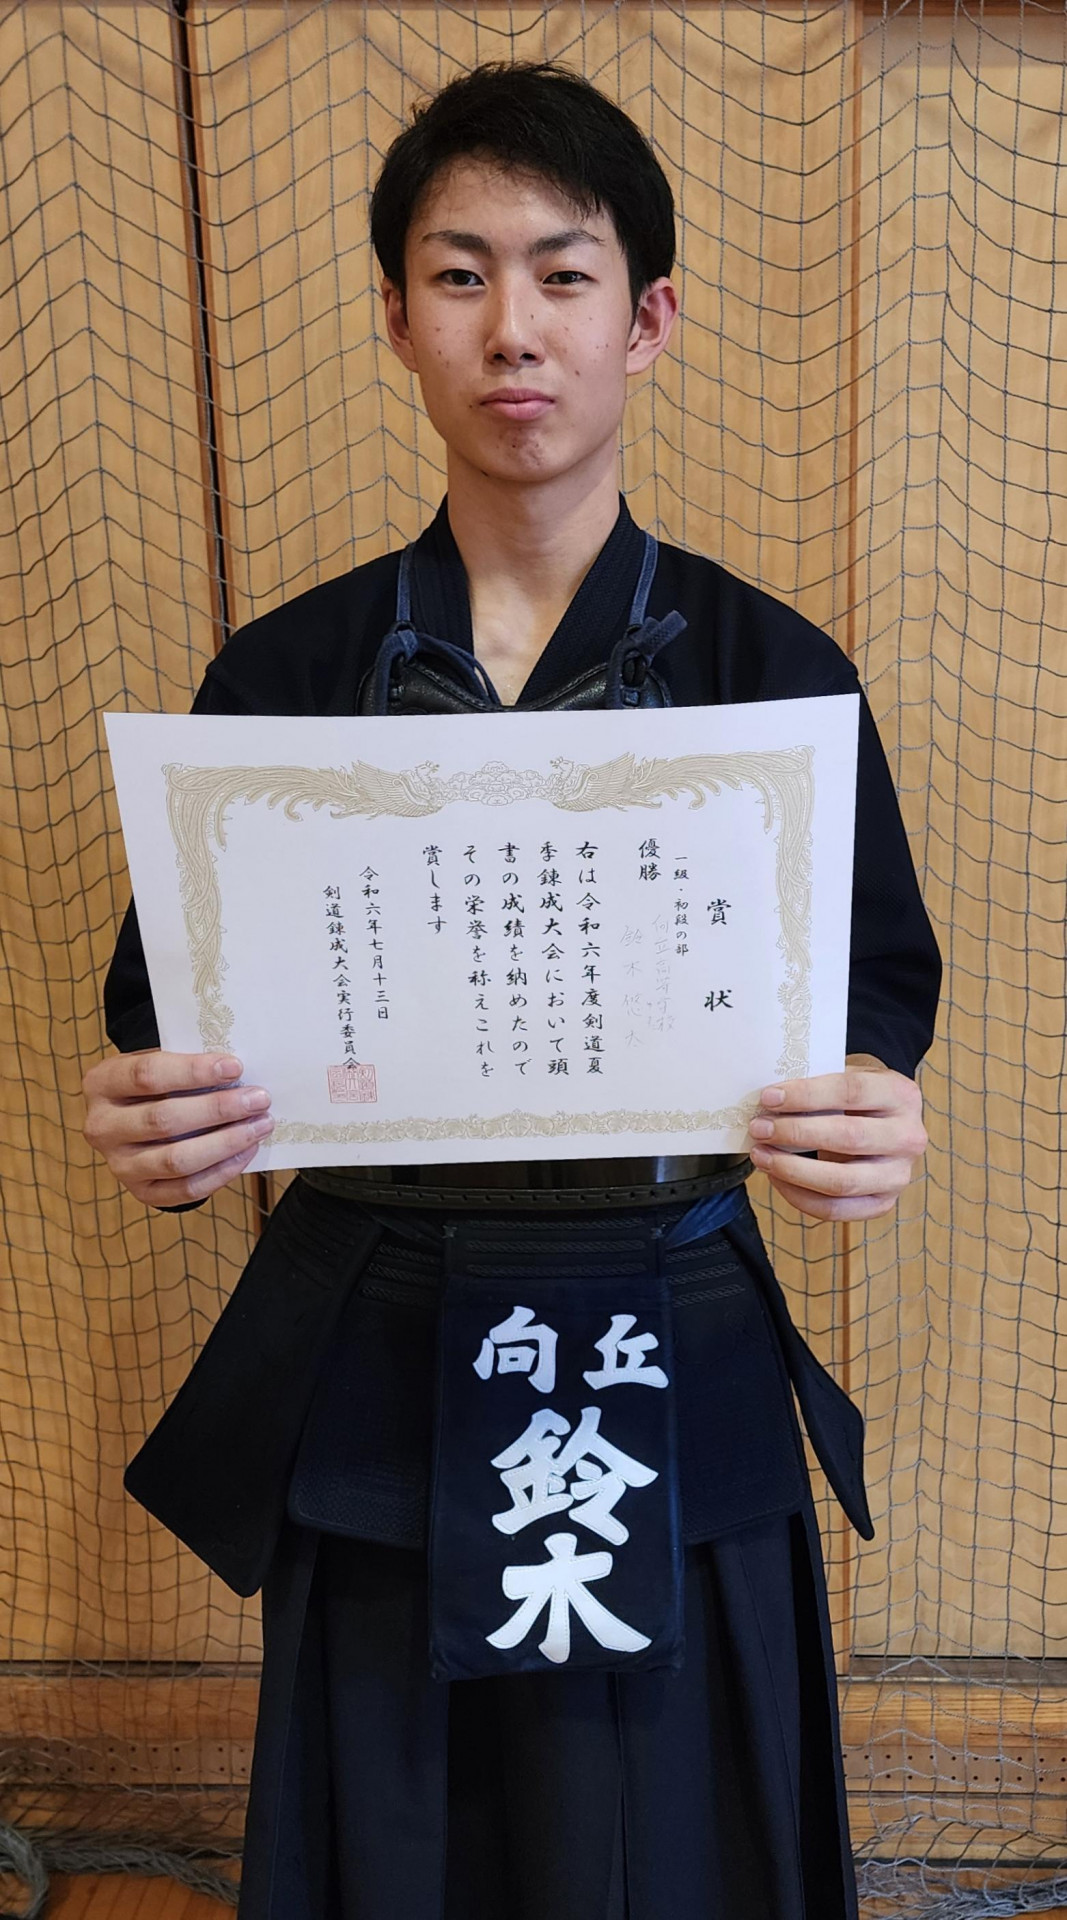 賞状
一級・初段の部
優勝
向丘高等学校
鈴木悠太
右は令和六年度剣道夏
季錬成大会において頭
書の成績を納めたので
その栄誉を称えこれを
賞します
令和六年七月十三日
剣道錬成大会実行委員会
向丘
鈴木